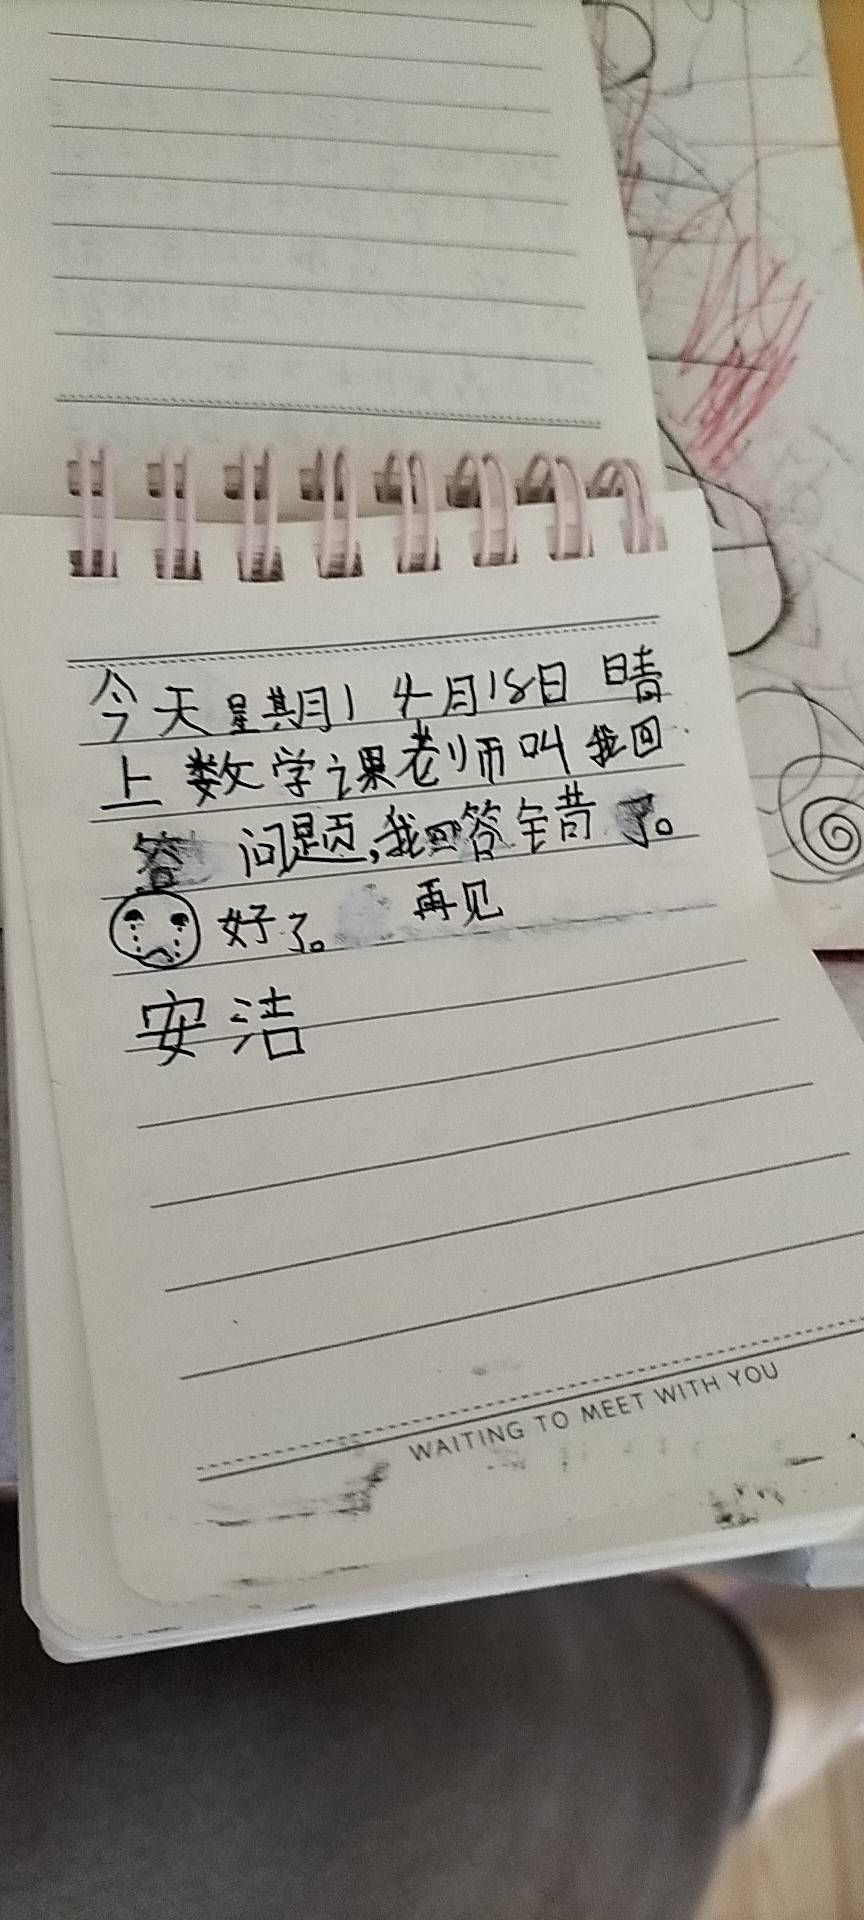 今天星期1 4月18日 晴
上数学课老师叫我回
答 问题,我回答错了。
好了。 再见
安洁
WAITING TO MEET WITH YOU